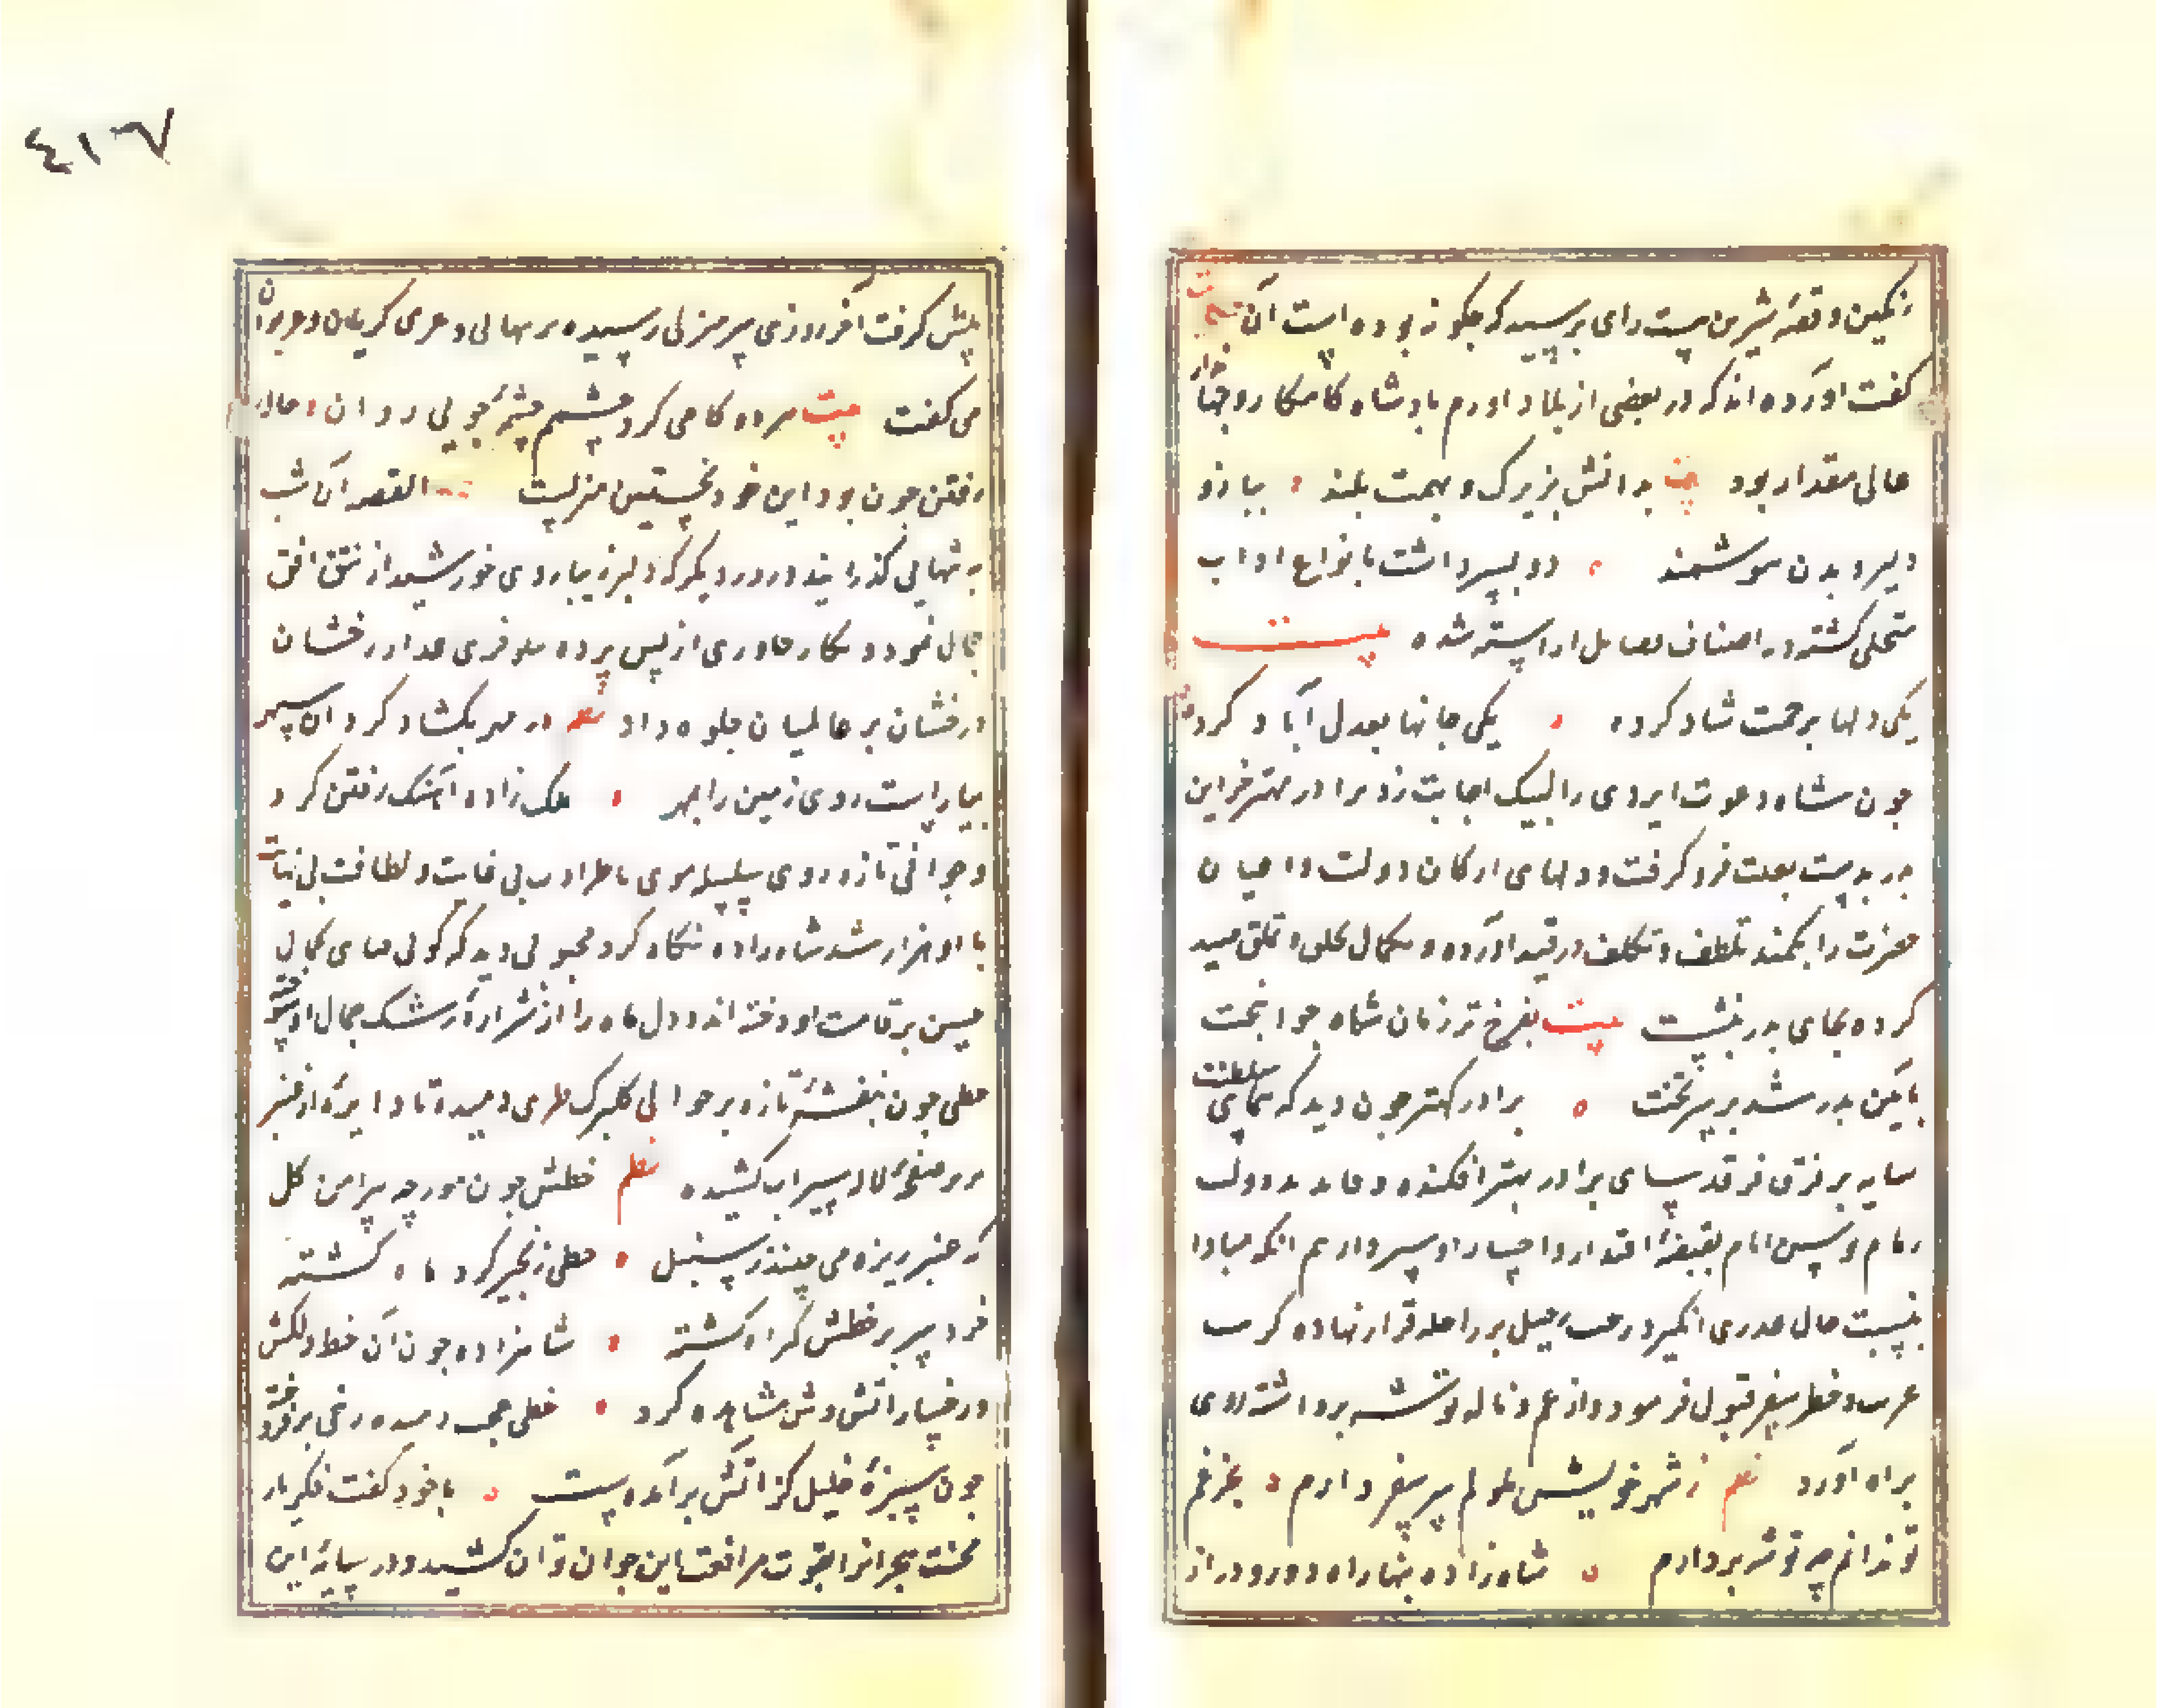 رنکین و قصهٔ شیرین بیت رای پرسید که چکونه بوده است آن حکایت
کفت آورده اند که در بعضی از بلاد اورم بادشاه کامکار و جهاندار
عالی مقدار بود بیت بدانش بزرک و بهمت بلند ببازو
دلیر و بدن هوشمند دو بسر داشت بانواع اداب
متحلی کشته و در اصناف فضایل اراسته شده بیت
یکی دلها برحمت شاد کرده یکی جانها بعدل آباد کرده
جون شاه دعوت ایزدی را لبیک اجابت زد برادر مهتر خزاین
بدر بدست بعت فرو کرفت و دلهای ارکان دولت و اعیان
حضرت را بکمند تلطف و تکلف در قید آورده و تملق صید
کرده بجای بدر بنشست بیت بفرخ ترزمان شاه جوانبخت
بآیین بدر شد بر سر تخت برادر کهتر جون دید که همای سلطنت
سایه بر فرق فرقد سای برادر مهتر افکنده و دولت
زمام توسن ایام بقبضهٔ اقتدار و اختیار او سپرد از بیم انکه مبادا
بنسبت حال غدری انکیزد رحیل بر راحله قرار نهاده کربت
غربت و خطر سفر قبول فرمود و از غم و ناله توشه برداشته روی
براه آورد نظم ز شهر خویش ملولم سر سفر دارم بجز غم
تو ندانم چه توشه بردارم شاه زاده تنها راه دور و دراز
٤١٦٧
پیش کرفت آخر روزی بسر منزلی رسیده بر تنهایی و کریان و
می کفت بیت می کرد چشم چشمهٔ جویی روان
رفتن جون بود این خود نخستین منزلست القصه آن شب
به تنهایی کذرانید و در روز دیکر که دلبر زیبا روی خورشید از تتق افق
جمال نمود و نکار خاوری از پس پرده نیلوفری عذار رخشان
درفشان بر عالمیان جلوه داد نظم در مهر بکشاد کردان سپهر
بیاراست روی زمین را بمهر ملک زاده آهنک رفتن کرد
و جوانی تازه روی سلسله موی با طراوت بی غایت و لطافت بی نهایت
با او همراه شد شاه زاده نکاه کرد محبوبی دید که کوئی قبای کمال
حسن بر قامت او دوخته اند و دل ماه را از شرار آرشک جمال او سوخته
خطی جون بنفشهٔ تازه بر حوالی کلبرک طری دمیده تا دایرهٔ از عنبر
بر صفحهٔ لاله سیراب کشیده نظم خطش جون مورچه پیرامن کل
که عنبر ریزه می چیند ز سنبل خطی زنجیر کرد ماه کشته
خرد پیر بر خطش کمراه کشته شاهزاده جون آن خط دلکش
و رخسار اتش وش مشاهده کرد خطی عجب دمیده رخی برفروخته
جون سبزهٔ خلیل کز اتش برآمده است با خود کفت مکر بار
محنت هجر انرا بقوت مرافقت این جوان توان کشید و در سایهٔ این